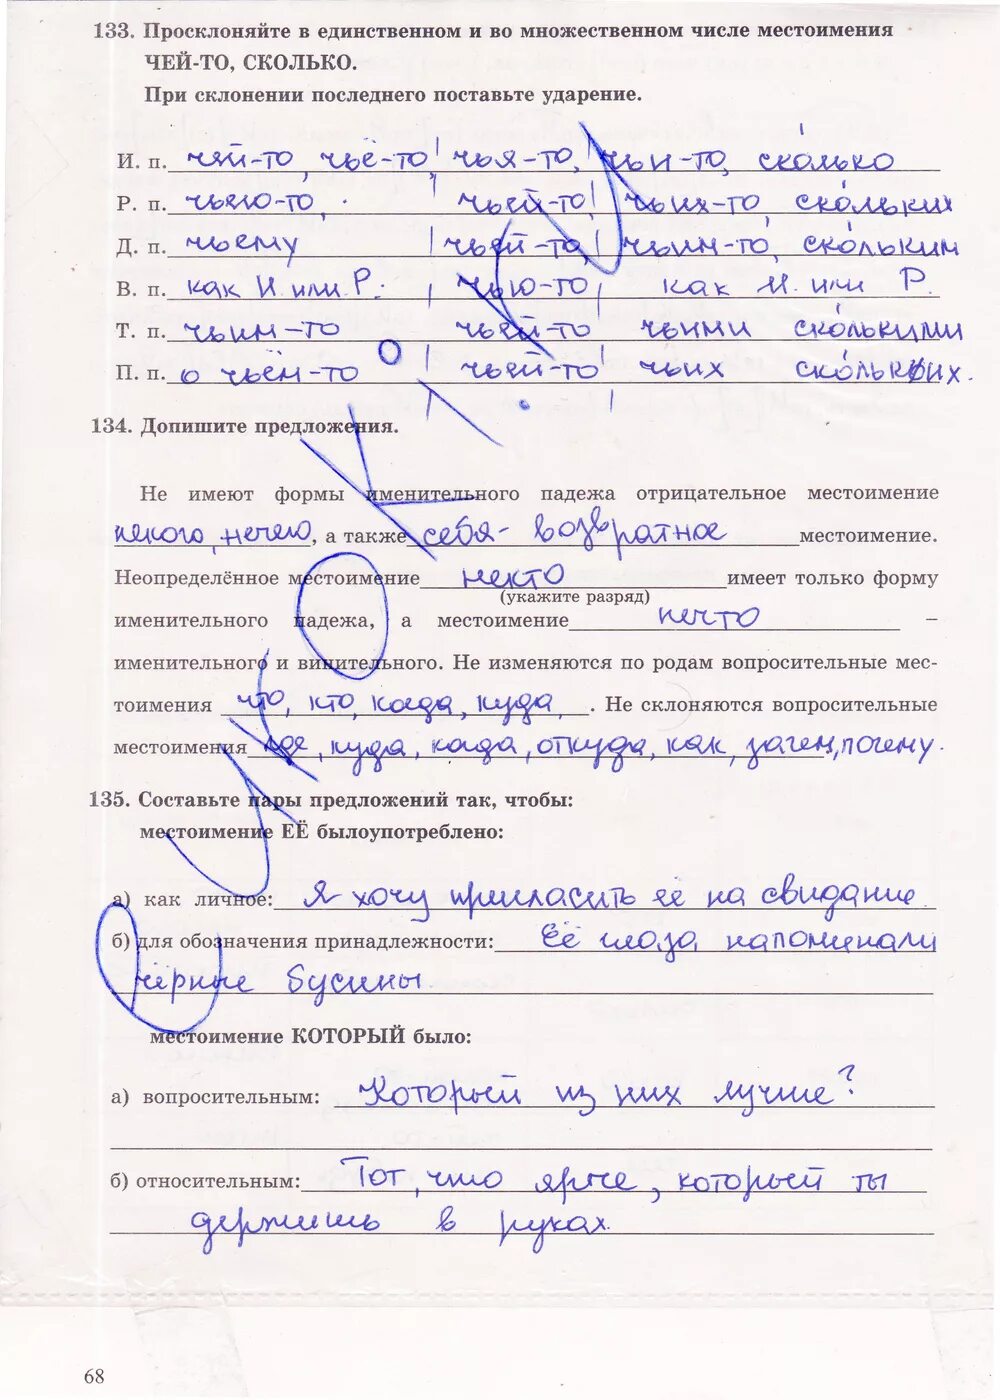 133. Просклоняйте в единственном и во множественном числе местоимения
ЧЕЙ-ТО, СКОЛЬКО.
При склонении последнего поставьте ударение.
И. п. чей-то, чьё-то, чья-то, чьи-то, ско́лько
Р. п. чьего-то, чьей-то, чьих-то, ско́льких
Д. п. чьему чьей-то, чьим-то, ско́льким
В. п. как И. или Р. чью-то как И. или Р.
Т. п. чьим-то чьей-то чьими ско́лькими
П. п. о чьём-то чьей-то чьих ско́льких.
134. Допишите предложения.
Не имеют формы именительного падежа отрицательное местоимение
некого, нечего, а также себя - возвратное местоимение.
Неопределённое местоимение некто имеет только форму
(укажите разряд)
именительного падежа, а местоимение нечто –
именительного и винительного. Не изменяются по родам вопросительные мес-
тоимения что, кто, когда, куда, . Не склоняются вопросительные
местоимения где, куда, когда, откуда, как, зачем, почему.
135. Составьте пары предложений так, чтобы:
местоимение ЕЁ былоупотреблено:
а) как личное: Я хочу пригласить её на свидание
б) для обозначения принадлежности: Её глаза напоминали
чёрные бусины.
местоимение КОТОРЫЙ было:
а) вопросительным: Который из них лучше?
б) относительным: Тот, что ярче, который ты
держишь в руках.
68